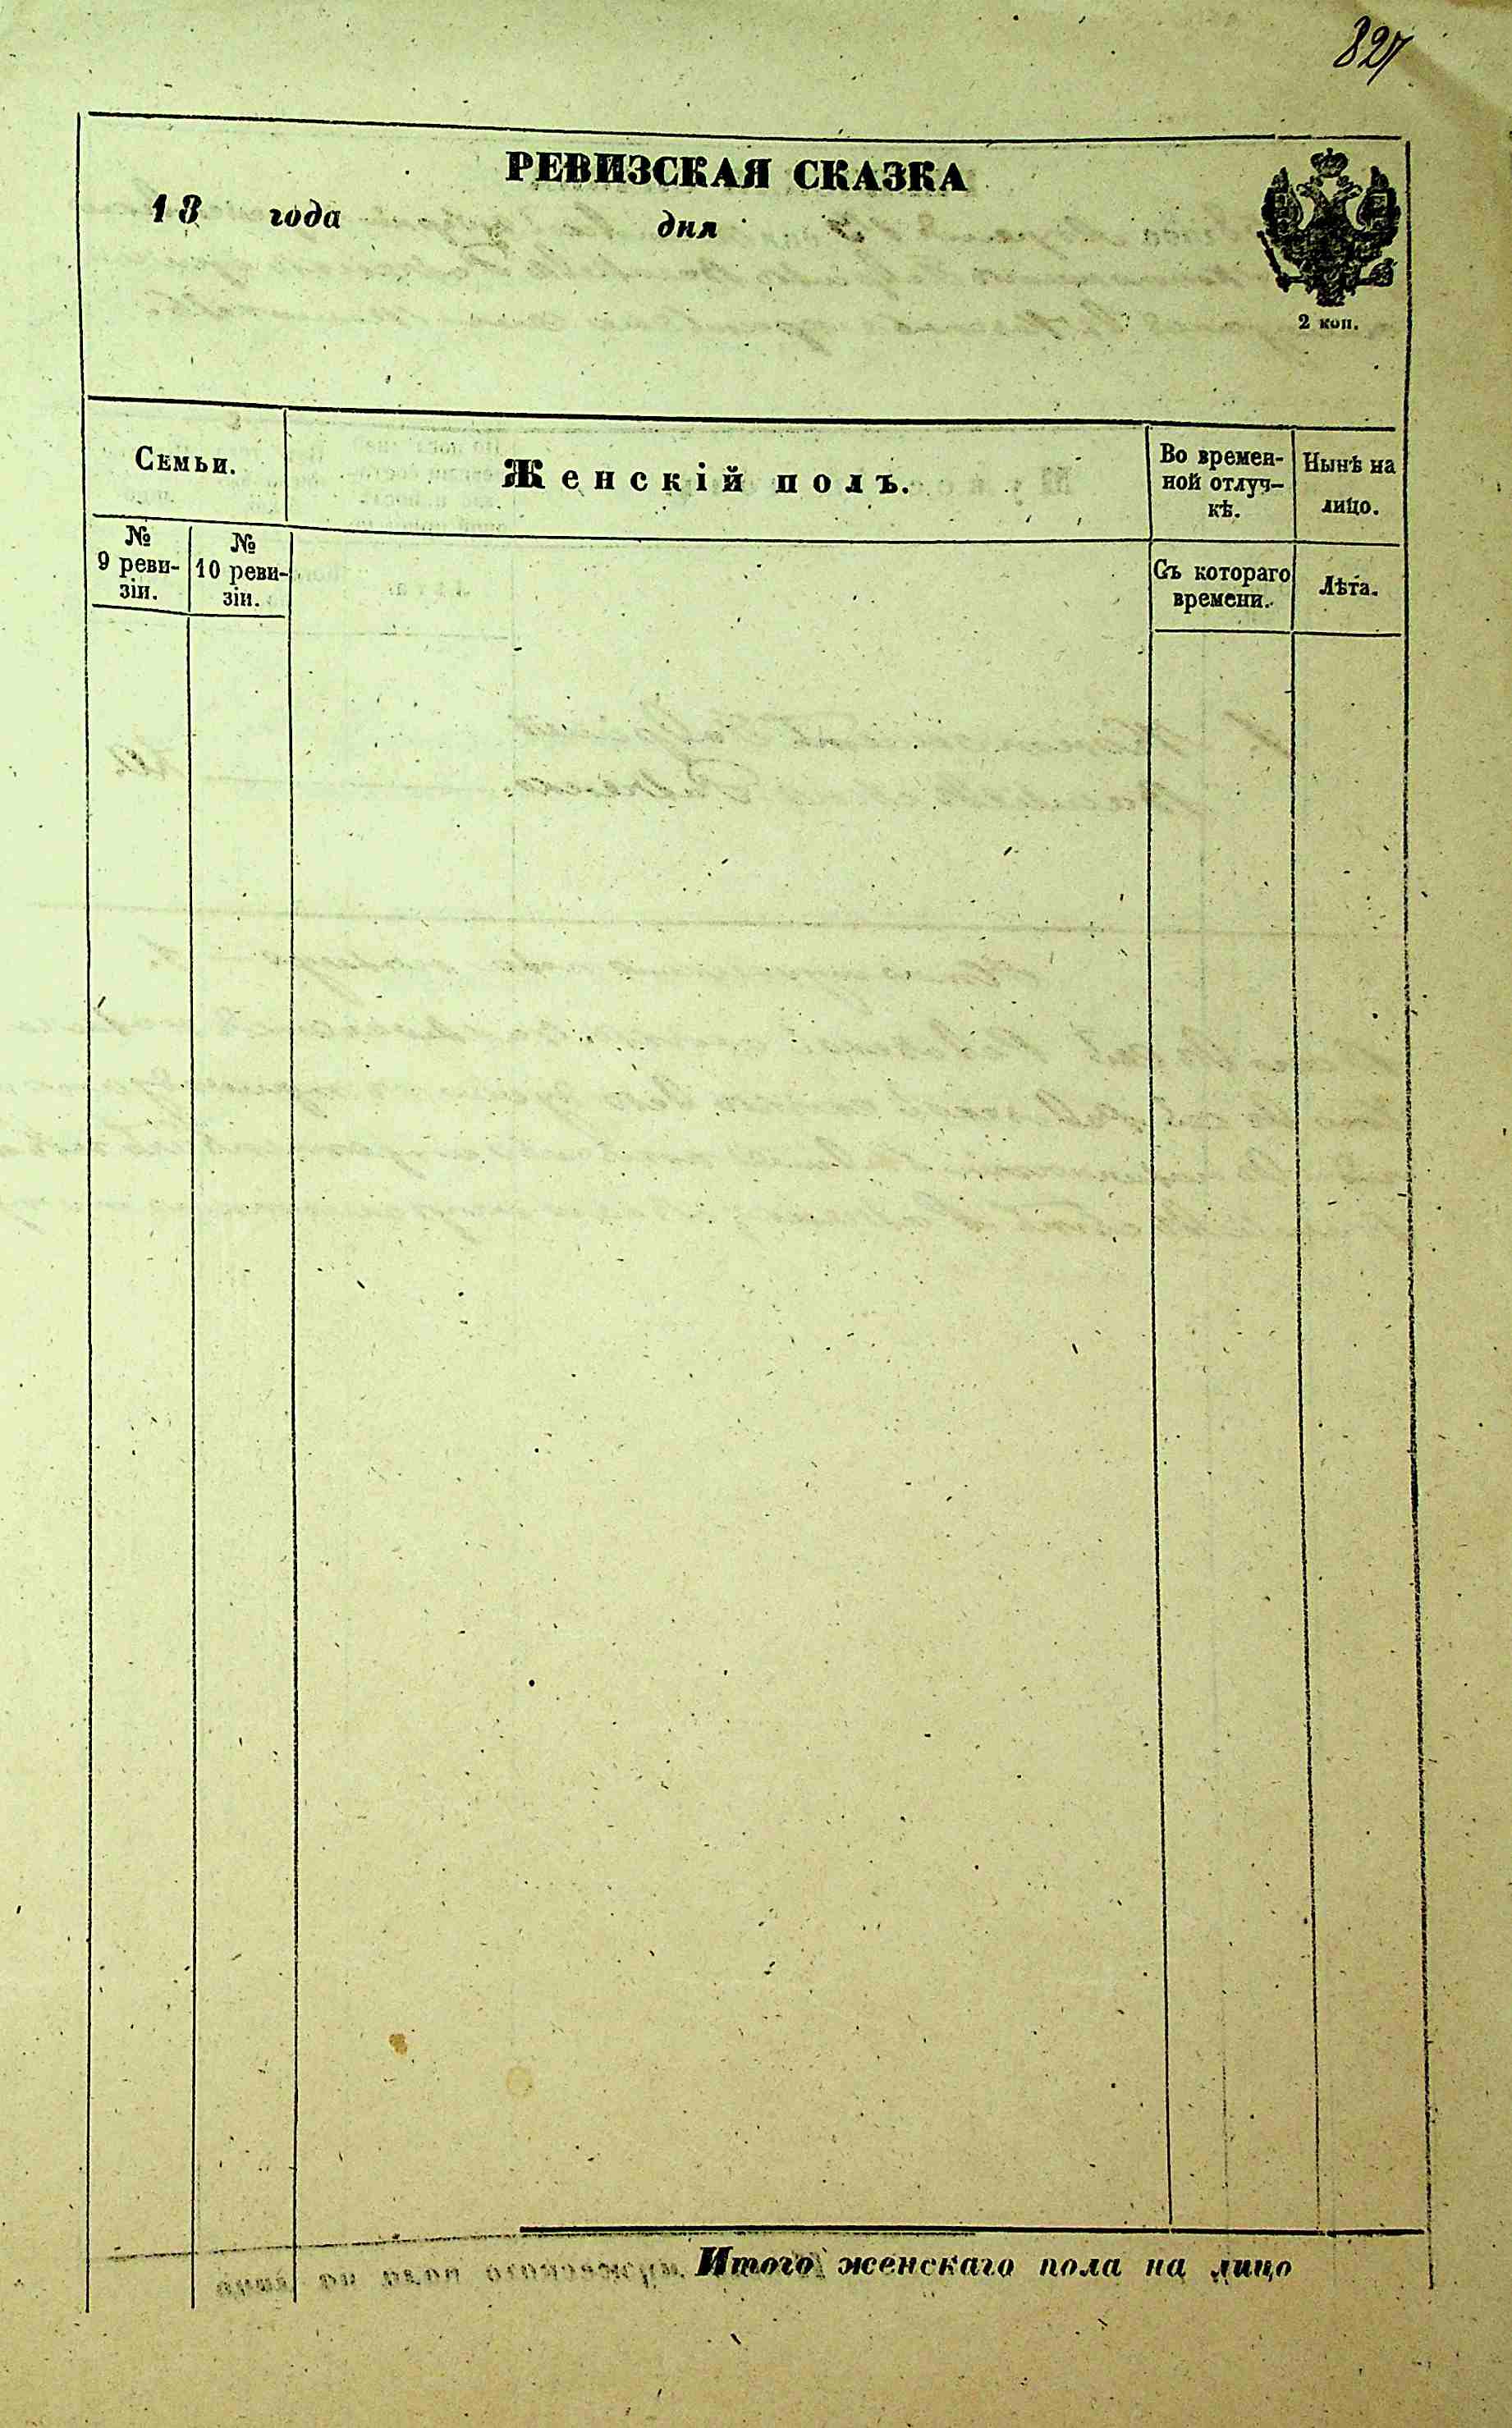 827
РЕВИЗСКАЯ СКАЗКА
18 года дня
2 коп.
Семьи.
Женскій полъ.
Во времен-
ной отлуч-
кѣ.
Нынѣ на
лицо.
№
9 реви-
зіи.
№
10 реви-
зіи.
Съ котораго
времени.
Лѣта.
Итого женскаго пола на лицо